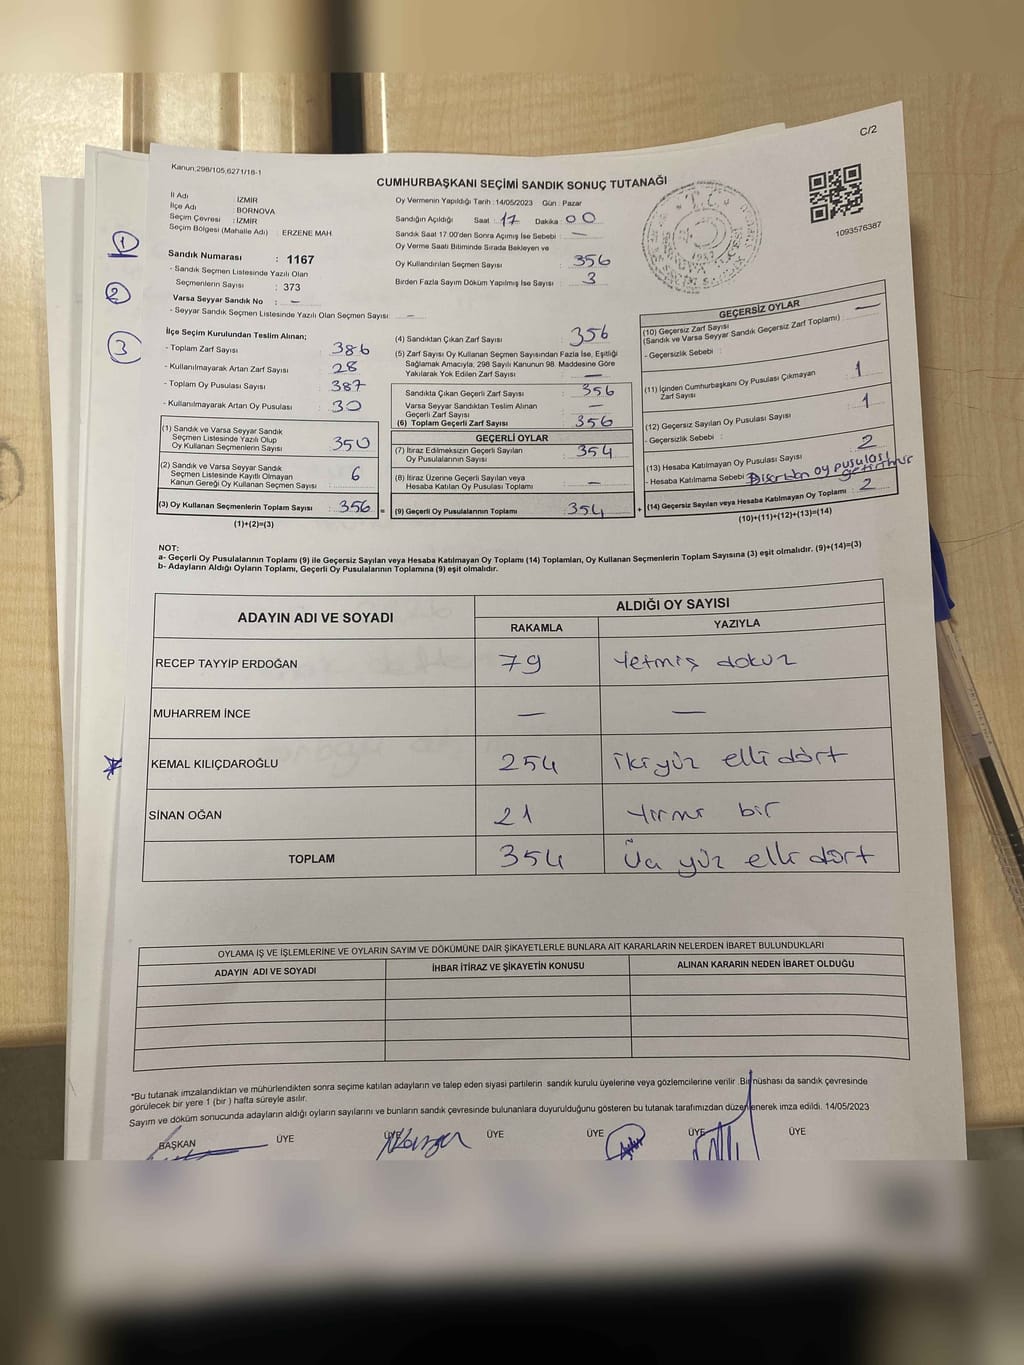 C/2
Kanun,298/105,6271/16-1
CUMHURBAŞKANI SEÇİMİ SANDIK SONUÇ TUTANAĞI
İl Adı : İZMİR
İlçe Adı : BORNOVA
Seçim Çevresi : İZMİR
Seçim Bölgesi (Mahalle Adı) : ERZENE MAH.
Oy Vermenin Yapıldığı Tarih :14/05/2023 Gün : Pazar
Sandığın Açıldığı Saat : 17 Dakika : 00
Sandık Saat 17.00'den Sonra Açımış İse Sebebi : —
Oy Verme Saati Bitiminde Sırada Bekleyen ve
Oy Kullandırılan Seçmen Sayısı : 356
Birden Fazla Sayım Döküm Yapılmış İse Sayısı : 3
T.C.
1093576387
1
2
3
Sandık Numarası : 1167
- Sandık Seçmen Listesinde Yazılı Olan
Seçmenlerin Sayısı : 373
Varsa Seyyar Sandık No : —
- Seyyar Sandık Seçmen Listesinde Yazılı Olan Seçmen Sayısı: —
İlçe Seçim Kurulundan Teslim Alınan;
- Toplam Zarf Sayısı : 386
- Kullanılmayarak Artan Zarf Sayısı : 28
- Toplam Oy Pusulası Sayısı : 387
- Kullanılmayarak Artan Oy Pusulası : 30
(1) Sandık ve Varsa Seyyar Sandık
Seçmen Listesinde Yazılı Olup
Oy Kullanan Seçmenlerin Sayısı : 350
(2) Sandık ve Varsa Seyyar Sandık
Seçmen Listesinde Kayıtlı Olmayan
Kanun Gereği Oy Kullanan Seçmen Sayısı : 6
(3) Oy Kullanan Seçmenlerin Toplam Sayısı : 356 =
(1)+(2)=(3)
(4) Sandıktan Çıkan Zarf Sayısı : 356
(5) Zarf Sayısı Oy Kullanan Seçmen Sayısından Fazla İse, Eşitliği
Sağlamak Amacıyla, 298 Sayılı Kanunun 98. Maddesine Göre
Yakılarak Yok Edilen Zarf Sayısı : —
Sandıkta Çıkan Geçerli Zarf Sayısı : 356
Varsa Seyyar Sandıktan Teslim Alınan
Geçerli Zarf Sayısı : —
(6) Toplam Geçerli Zarf Sayısı : 356
GEÇERLİ OYLAR
(7) İtiraz Edilmeksizin Geçerli Sayılan
Oy Pusulalarının Sayısı : 354
(8) İtiraz Üzerine Geçerli Sayılan veya
Hesaba Katılan Oy Pusulası Toplamı : —
(9) Geçerli Oy Pusulalarının Toplamı : 354 +
GEÇERSİZ OYLAR
(10) Geçersiz Zarf Sayısı
(Sandık ve Varsa Seyyar Sandık Geçersiz Zarf Toplamı) : —
- Geçersizlik Sebebi :
(11) İçinden Cumhurbaşkanı Oy Pusulası Çıkmayan
Zarf Sayısı : 1
(12) Geçersiz Sayılan Oy Pusulası Sayısı : 1
- Geçersizlik Sebebi :
(13) Hesaba Katılmayan Oy Pusulası Sayısı : 2
- Hesaba Katılmama Sebebi : Dışarıdan oy pusulası getirilmiş
(14) Geçersiz Sayılan veya Hesaba Katılmayan Oy Toplamı : 2
(10)+(11)+(12)+(13)=(14)
NOT:
a- Geçerli Oy Pusulalarının Toplamı (9) ile Geçersiz Sayılan veya Hesaba Katılmayan Oy Toplamı (14) Toplamları, Oy Kullanan Seçmenlerin Toplam Sayısına (3) eşit olmalıdır. (9)+(14)=(3)
b- Adayların Aldığı Oyların Toplamı, Geçerli Oy Pusulalarının Toplamına (9) eşit olmalıdır.
ADAYIN ADI VE SOYADI ALDIĞI OY SAYISI
RAKAMLA YAZIYLA
RECEP TAYYİP ERDOĞAN 79 Yetmiş dokuz
MUHARREM İNCE — —
KEMAL KILIÇDAROĞLU 254 iki yüz elli dört
SİNAN OĞAN 21 Yirmi bir
TOPLAM 354 Üç yüz elli dört
OYLAMA İŞ VE İŞLEMLERİNE VE OYLARIN SAYIM VE DÖKÜMÜNE DAİR ŞİKAYETLERLE BUNLARA AİT KARARLARIN NELERDEN İBARET BULUNDUKLARI
ADAYIN ADI VE SOYADI İHBAR İTİRAZ VE ŞİKAYETİN KONUSU ALINAN KARARIN NEDEN İBARET OLDUĞU
*Bu tutanak imzalandıktan ve mühürlendikten sonra seçime katılan adayların ve talep eden siyasi partilerin sandık kurulu üyelerine veya gözlemcilerine verilir .Bir nüshası da sandık çevresinde
görülecek bir yere 1 (bir ) hafta süreyle asılır.
Sayım ve döküm sonucunda adayların aldığı oyların sayılarını ve bunların sandık çevresinde bulunanlara duyurulduğunu gösteren bu tutanak tarafımızdan düzenlenerek imza edildi. 14/05/2023
BAŞKAN ÜYE ÜYE ÜYE ÜYE ÜYE ÜYE